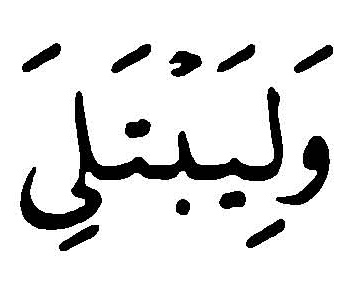 وَلِيَبْتَلِيَ